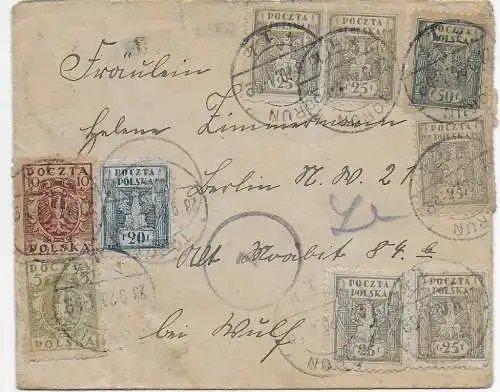 POCZTA POLSKA 25 F
POCZTA POLSKA 25 F
POCZTA POLSKA 50 F
TORUN
Fräulein
Helene Zimmermann
POCZTA POLSKA 25 F
POCZTA
10 10
POLSKA
POCZTA POLSKA
F 20 F
Berlin N. W. 21
Alt Moabit 84 a
POCZTA
5 5
POLSKA
bei Wulf
POCZTA POLSKA F 25 F
POCZTA POLSKA F 25 F